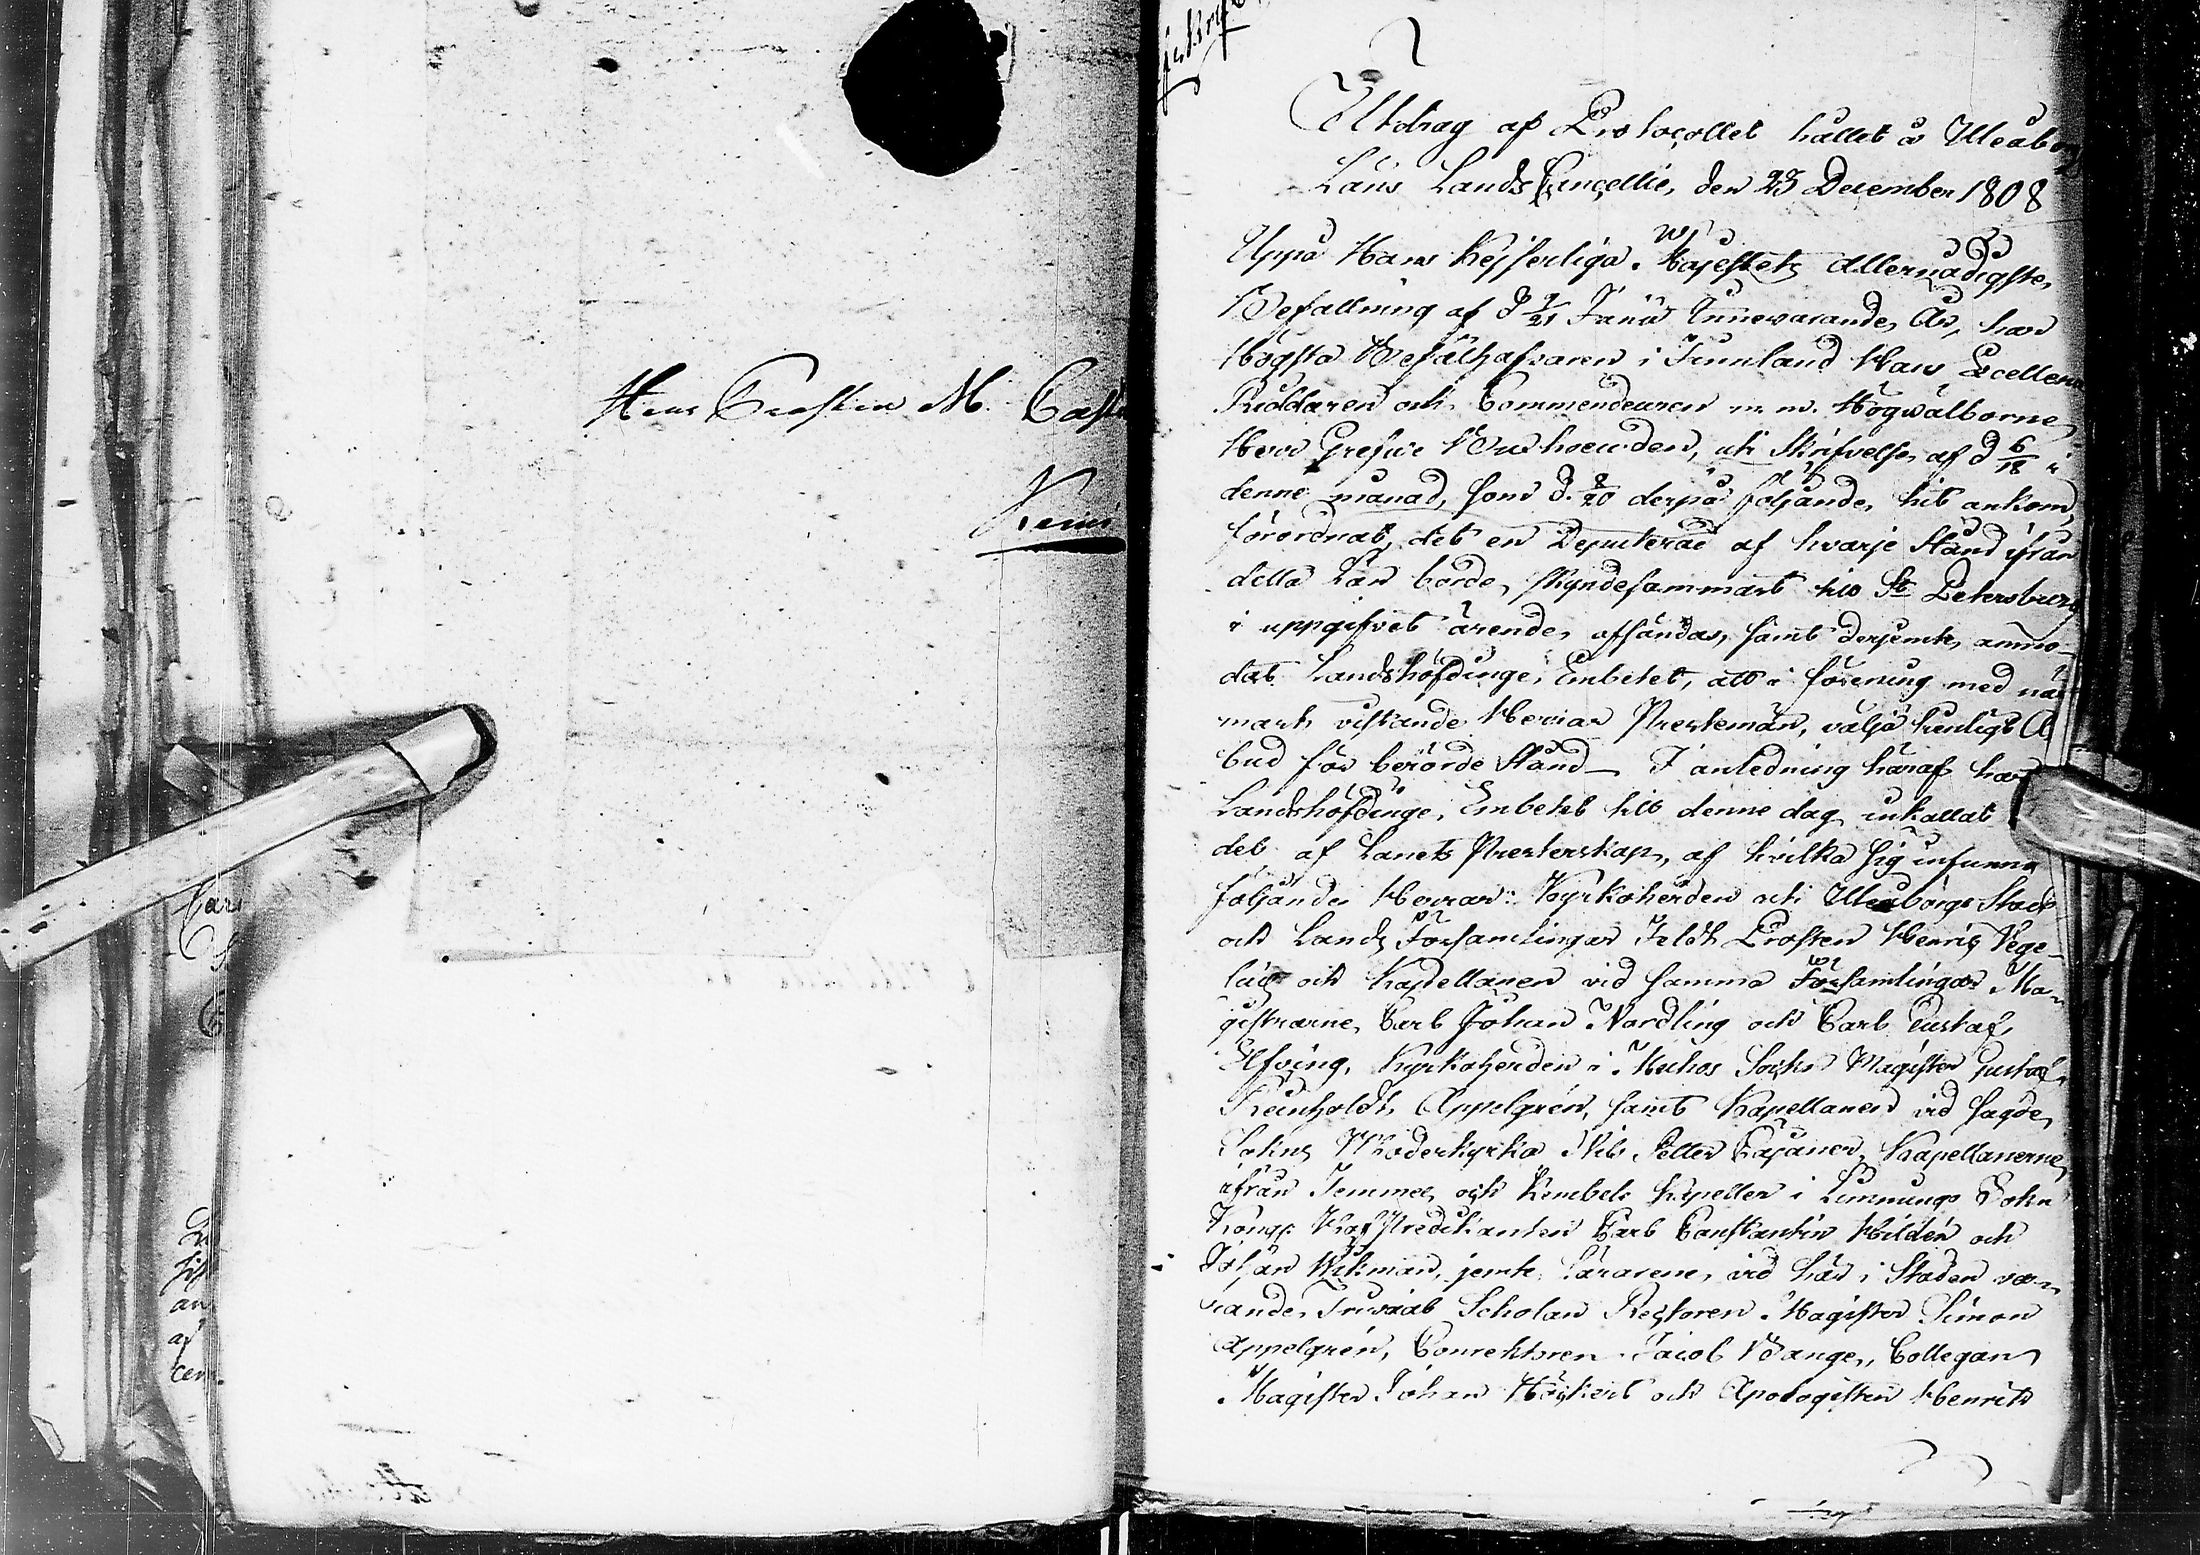 Herr Prosten M. Cast
Kemi
Utdrag af Protocollet hållet å Uleåborgs
Läns Lands Cancellie, den 23 December 1808
Uppå Hans Kejserliga Majestets Allernådigste
Befallning af d 9/21 Junii Innevarande År, har
Högsta Befälhafvaren i Finnland Hans Excellence
Riddaren och Commendeuren m. m. Högwälborne
Herr Grefve Buxhoewden, uti Skrifvelse af d 6/18 i
denne månad, som d. 8/20 derpå följande hit ankom,
förordnat, det en Deputerad af hvarje Stånd ifrån
detta Län borde skyndesammast till St Petersburg
i uppgifvet ärende afsändas, samt derjemte anmo-
dat Landshöfdinge Embetet, att i förening med när-
mast vistande Herrar Prestemän, välja kunligt
bud för berörde Stånd – I anledning häraf har
Landshöfdinge Embetet till denne dag inkallat
det af Länets Presterskap, af hvilka sig infunno
följande Herrar: Kyrkoherden uti Uleåborgs Stads
och Lands Församlingar Feldt Prosten Henric Vege-
lius och Kapellanen vid samma Församlingar Ma-
gistrarne Carl Johan Nordling och Carl Gustaf
Elfving, Kyrkoherden i Muhos Sockn Magister Gustaf
Reinholdt Appelgrén, samt Kapellanen vid sagde
Sokns Moderkyrka Nils Petter Cajaner, Kapellanerne
ifrån Temmes och Kembele Kapeller i Limmingo Sokn
Kongl. Hof Predikanten Carl Constantin Hildén och
Johan Wikman, jemte Lärarene vid här i Staden va-
rande Trivial Scholan Rectoren Magister Simon
Appelgrén, Conrektoren Jacob Bange, Collegan
Magister Johan Höckert och Apologisten Henrik